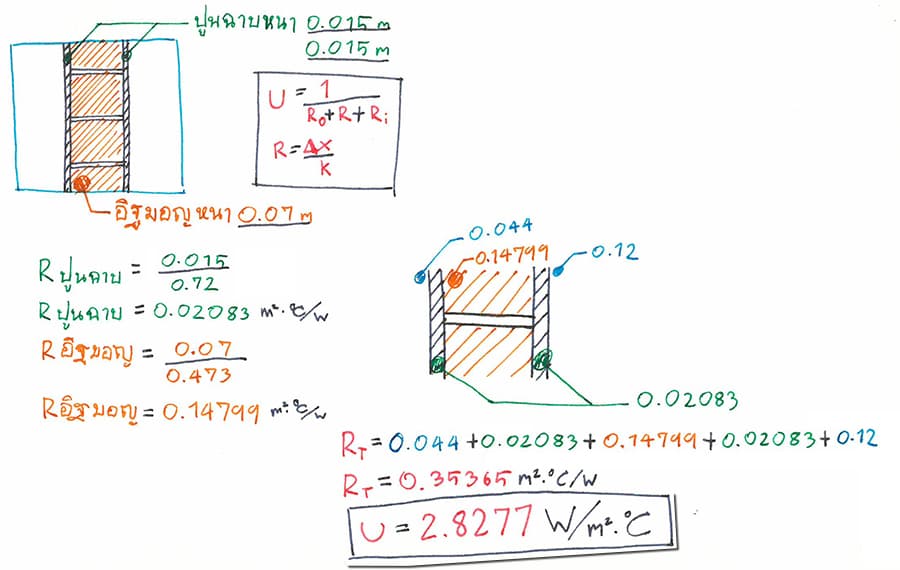 ปูนฉาบหนา 0.015 m
0.015 m
U = 1 / Ro + R + Ri
R = Δx / K
อิฐมอญหนา 0.07 m
0.044
0.14799
0.12
R ปูนฉาบ = 0.015 / 0.72
R ปูนฉาบ = 0.02083 m²·°C/W
R อิฐมอญ = 0.07 / 0.473
R อิฐมอญ = 0.14799 m²·°C/W
0.02083
RT = 0.044 + 0.02083 + 0.14799 + 0.02083 + 0.12
RT = 0.35365 m²·°C/W
U = 2.8277 W/m²·°C